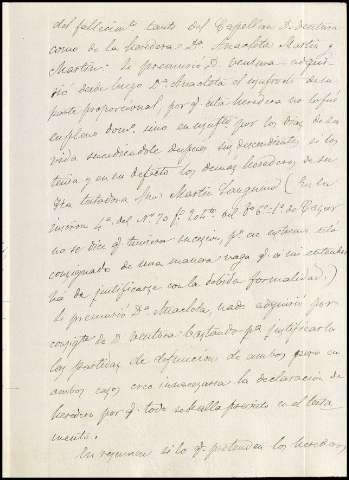 del fallecimto tanto del Capellan D. Ventura
como de la heredera Dª Anacleta Martin y
Martin. Si premurió D. Ventura adqui-
rió desde luego Dª Anacleta el usufructo de su
parte proporcional, por q. esta heredera no lo fué
en pleno domº, sino en usufto por los dias de su
vida sucediendole despues sus descendientes si los
tenia y en su defecto los demás herederos de su
testadora Srª Martin (En la
inscron 4ª del Nº 70 fº 204 del
no se dice q. tuviera sucesion, pº ae estando esto
consignado de una manera vaga q. a mi entender
há de justificarse con la debida formalidad.)
Si premurió Dª Anacleta, nada adquirió por
consigte de D. Ventura bastando pª justificarlo
las partidas de defuncion de ambos pero en
ambos casos creo innecesaria la declaración de
heredero por q. todo se halla previsto en el testa
mento.
En resumen si lo q. pretenden los herederos